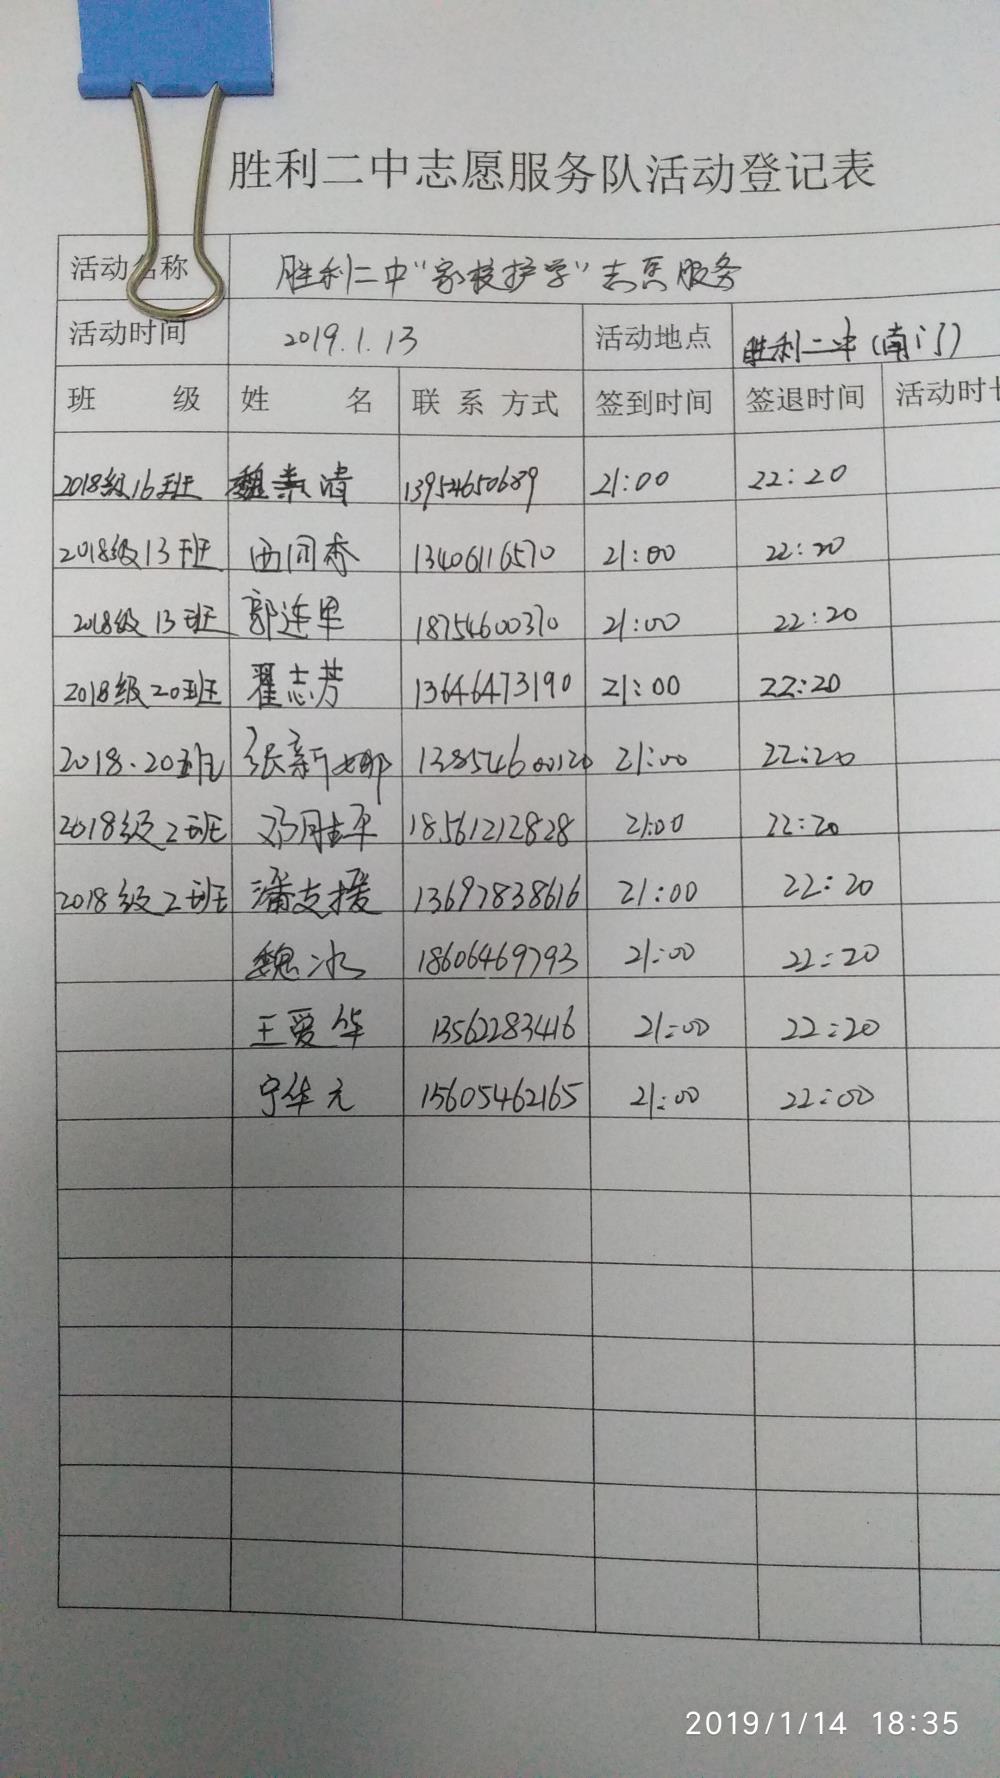 胜利二中志愿服务队活动登记表
活动名称 胜利二中"家校护学"志愿服务
活动时间 2019.1.13 活动地点 胜利二中(南门)
班 级 姓 名 联 系 方式 签到时间 签退时间 活动时
2018级16班 魏素清 13954650689 21:00 22:20
2018级13班 西同春 13406116570 21:00 22:20
2018级13班 郭连里 18754600370 21:00 22:20
2018级20班 翟志芳 13646473190 21:00 22:20
2018.20班 张新娜 13854600120 21:00 22:20
2018级2班 邓胜平 18561212828 21:00 22:20
2018级2班 潘支援 13697838616 21:00 22:20
魏冰 18606469793 21:00 22:20
王爱华 13562283416 21:00 22:20
宁华元 15605462165 21:00 22:00
2019/1/14 18:35